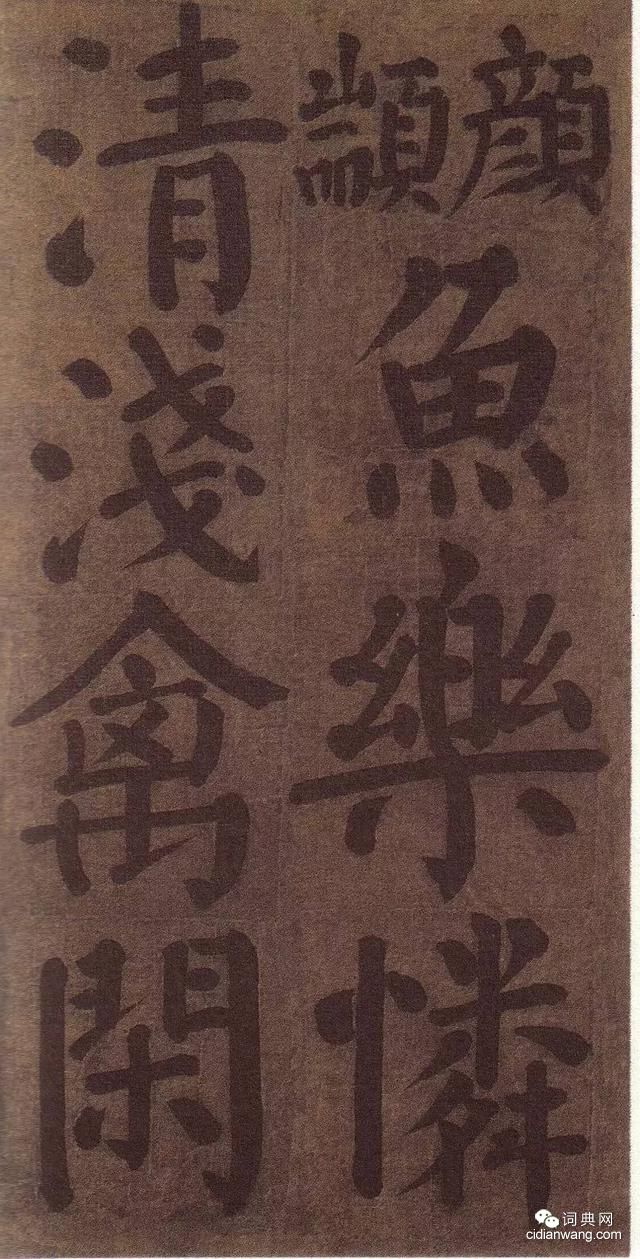 顔顓魚樂憐
清淺禽閑
词典网
cidianwang.com